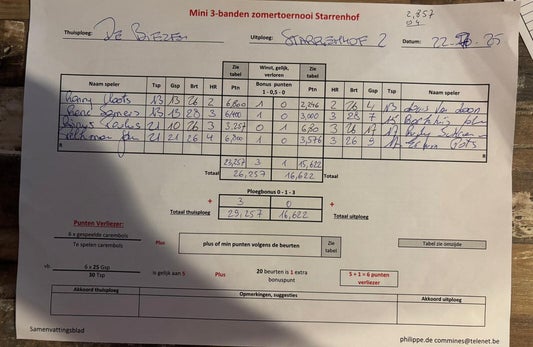 Mini 3-banden zomertoernooi Starrenhof
2,857
Thuisploeg: De Biezen Uitploeg: Starrenhof 2 Datum: 22 25
Zie tabel Winst, gelijk, verloren Zie tabel
Naam speler Tsp Gsp Brt HR Ptn Bonus punten 1 - 0,5 - 0 Ptn HR Brt Gsp Tsp Naam speler
13 13 26 2 6,800 1 0 2,846 2 26 4 13
René 15 15 28 3 6,400 1 0 3,000 3 28 7 15
21 10 26 3 3,257 0 1 6,80 3 26 17 17
21 21 26 4 6,800 1 0 3,576 3 26 9 17
R R
23,257 3 1 15,622
Totaal 26,257 16,622 Totaal
Ploegbonus 0 - 1 - 3
+ 3 0 +
Totaal thuisploeg 29,257 16,622 Totaal uitploeg
Punten Verliezer:
6 x gespeelde carembols
Te spelen carembols
Plus
plus of min punten volgens de beurten
Zie tabel
Tabel zie omzijde
vb. 6 x 25 Gsp
30 Tsp
is gelijk aan 5
Plus
20 beurten is 1 extra bonuspunt
5 + 1 = 6 punten verliezer
Akkoord thuisploeg Opmerkingen, suggesties Akkoord uitploeg
Samenvattingsblad
philippe.de commines@telenet.be